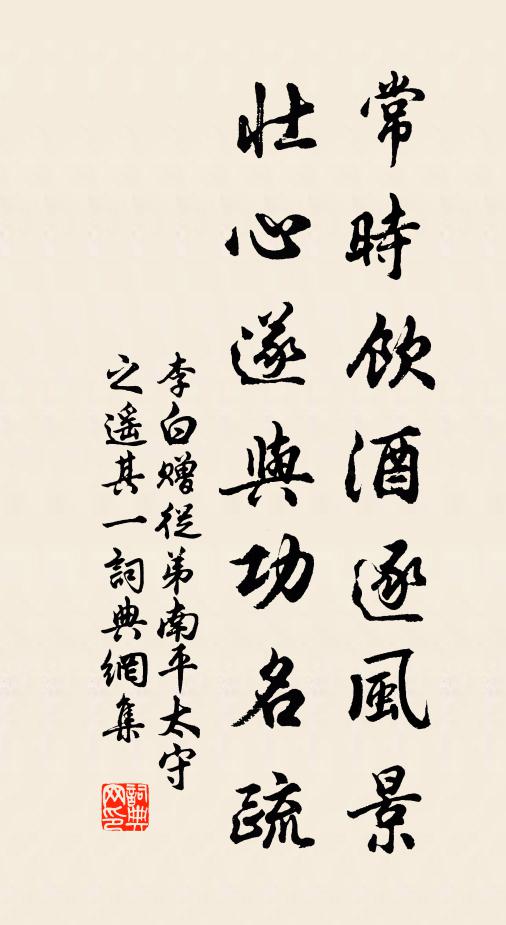 常時飲酒逐風景
壯心遂與功名疏
李白贈從弟南平太守
之遙其一詞典網集
詞典
网印